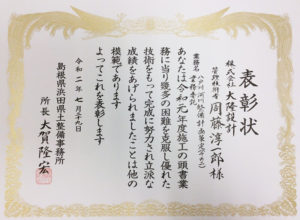 表彰状
株式会社 大隆設計
管理技術者 周藤淳一郎 様
業務名
業務委託
あなたは令和元年度施工の頭書業
務に当り幾多の困難を克服し優れた
技術をもって完成に努力され立派な
成績をあげられましたことは他の
模範であります
よってこれを表彰します
令和二年七月二十九日
島根県浜田県土整備事務所
所長 大賀隆宏